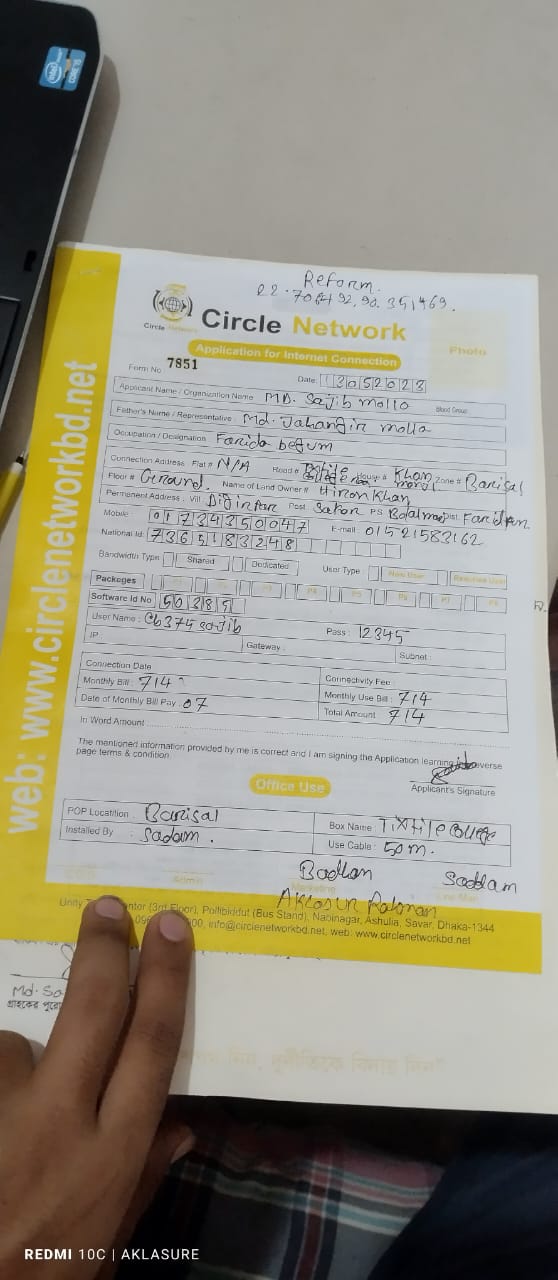 intel
CORE i5
Reform.
Circle Network
Circle Network
Application for Internet Connection
Photo
Form No : 7851
Date: 13052023
Applicant Name / Organization Name MD. Sajib molla Blood Group
Father's Name / Representative : Md. Jahangir molla
Occupation / Designation Farida begum
Connection Address Flat # N/A Road # House # Khan Zone # Barisal
Floor # Ground. Name of Land Owner # Hiron Khan
Permanent Address : Vill Post PS Dist.
Mobile 01734350047 E-mail : 01521583162
National Id: 7365183248
Bandwidth Type Shared Dedicated User Type New User
Packages P4 P5 P6 P7 P8
Software Id No 50385
User Name : Cb374sajib Pass : 12345
IP : Gateway : Subnet :
Connection Date Connectivity Fee :
Monthly Bill : 714 Monthly Use Bill : 714
Date of Monthly Bill Pay : 07 Total Amount : 714
In Word Amount
The mentioned information provided by me is correct and I am signing the Application learning reverse
page terms & condition.
Applicant's Signature
Office Use
POP Locatition : Barisal Box Name :
Installed By : Sadam. Use Cable : 50m.
Saddam
Admin Marketing
(3rd Floor), Pollibiddut (Bus Stand), Nabinagar, Ashulia, Savar, Dhaka-1344
info@circlenetworkbd.net, web: www.circlenetworkbd.net
web: www.circlenetworkbd.net
Md. Sa
গ্রাহকের
REDMI 10C | AKLASURE